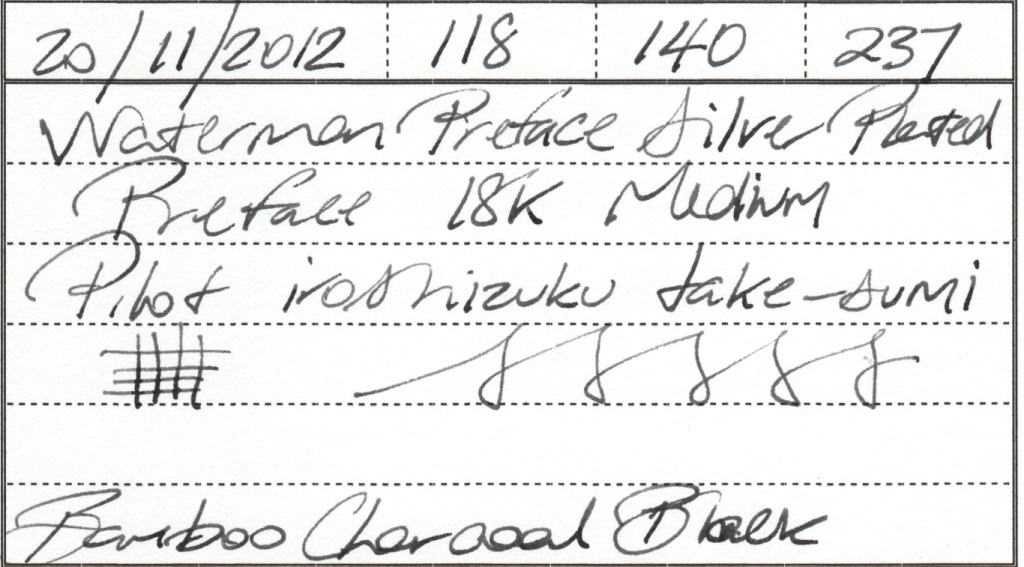 20/11/2012 118 140 237
Waterman Preface Silver Plated
Preface 18K Medium
Pilot iroshizuku take-sumi
Bamboo Charcoal Black